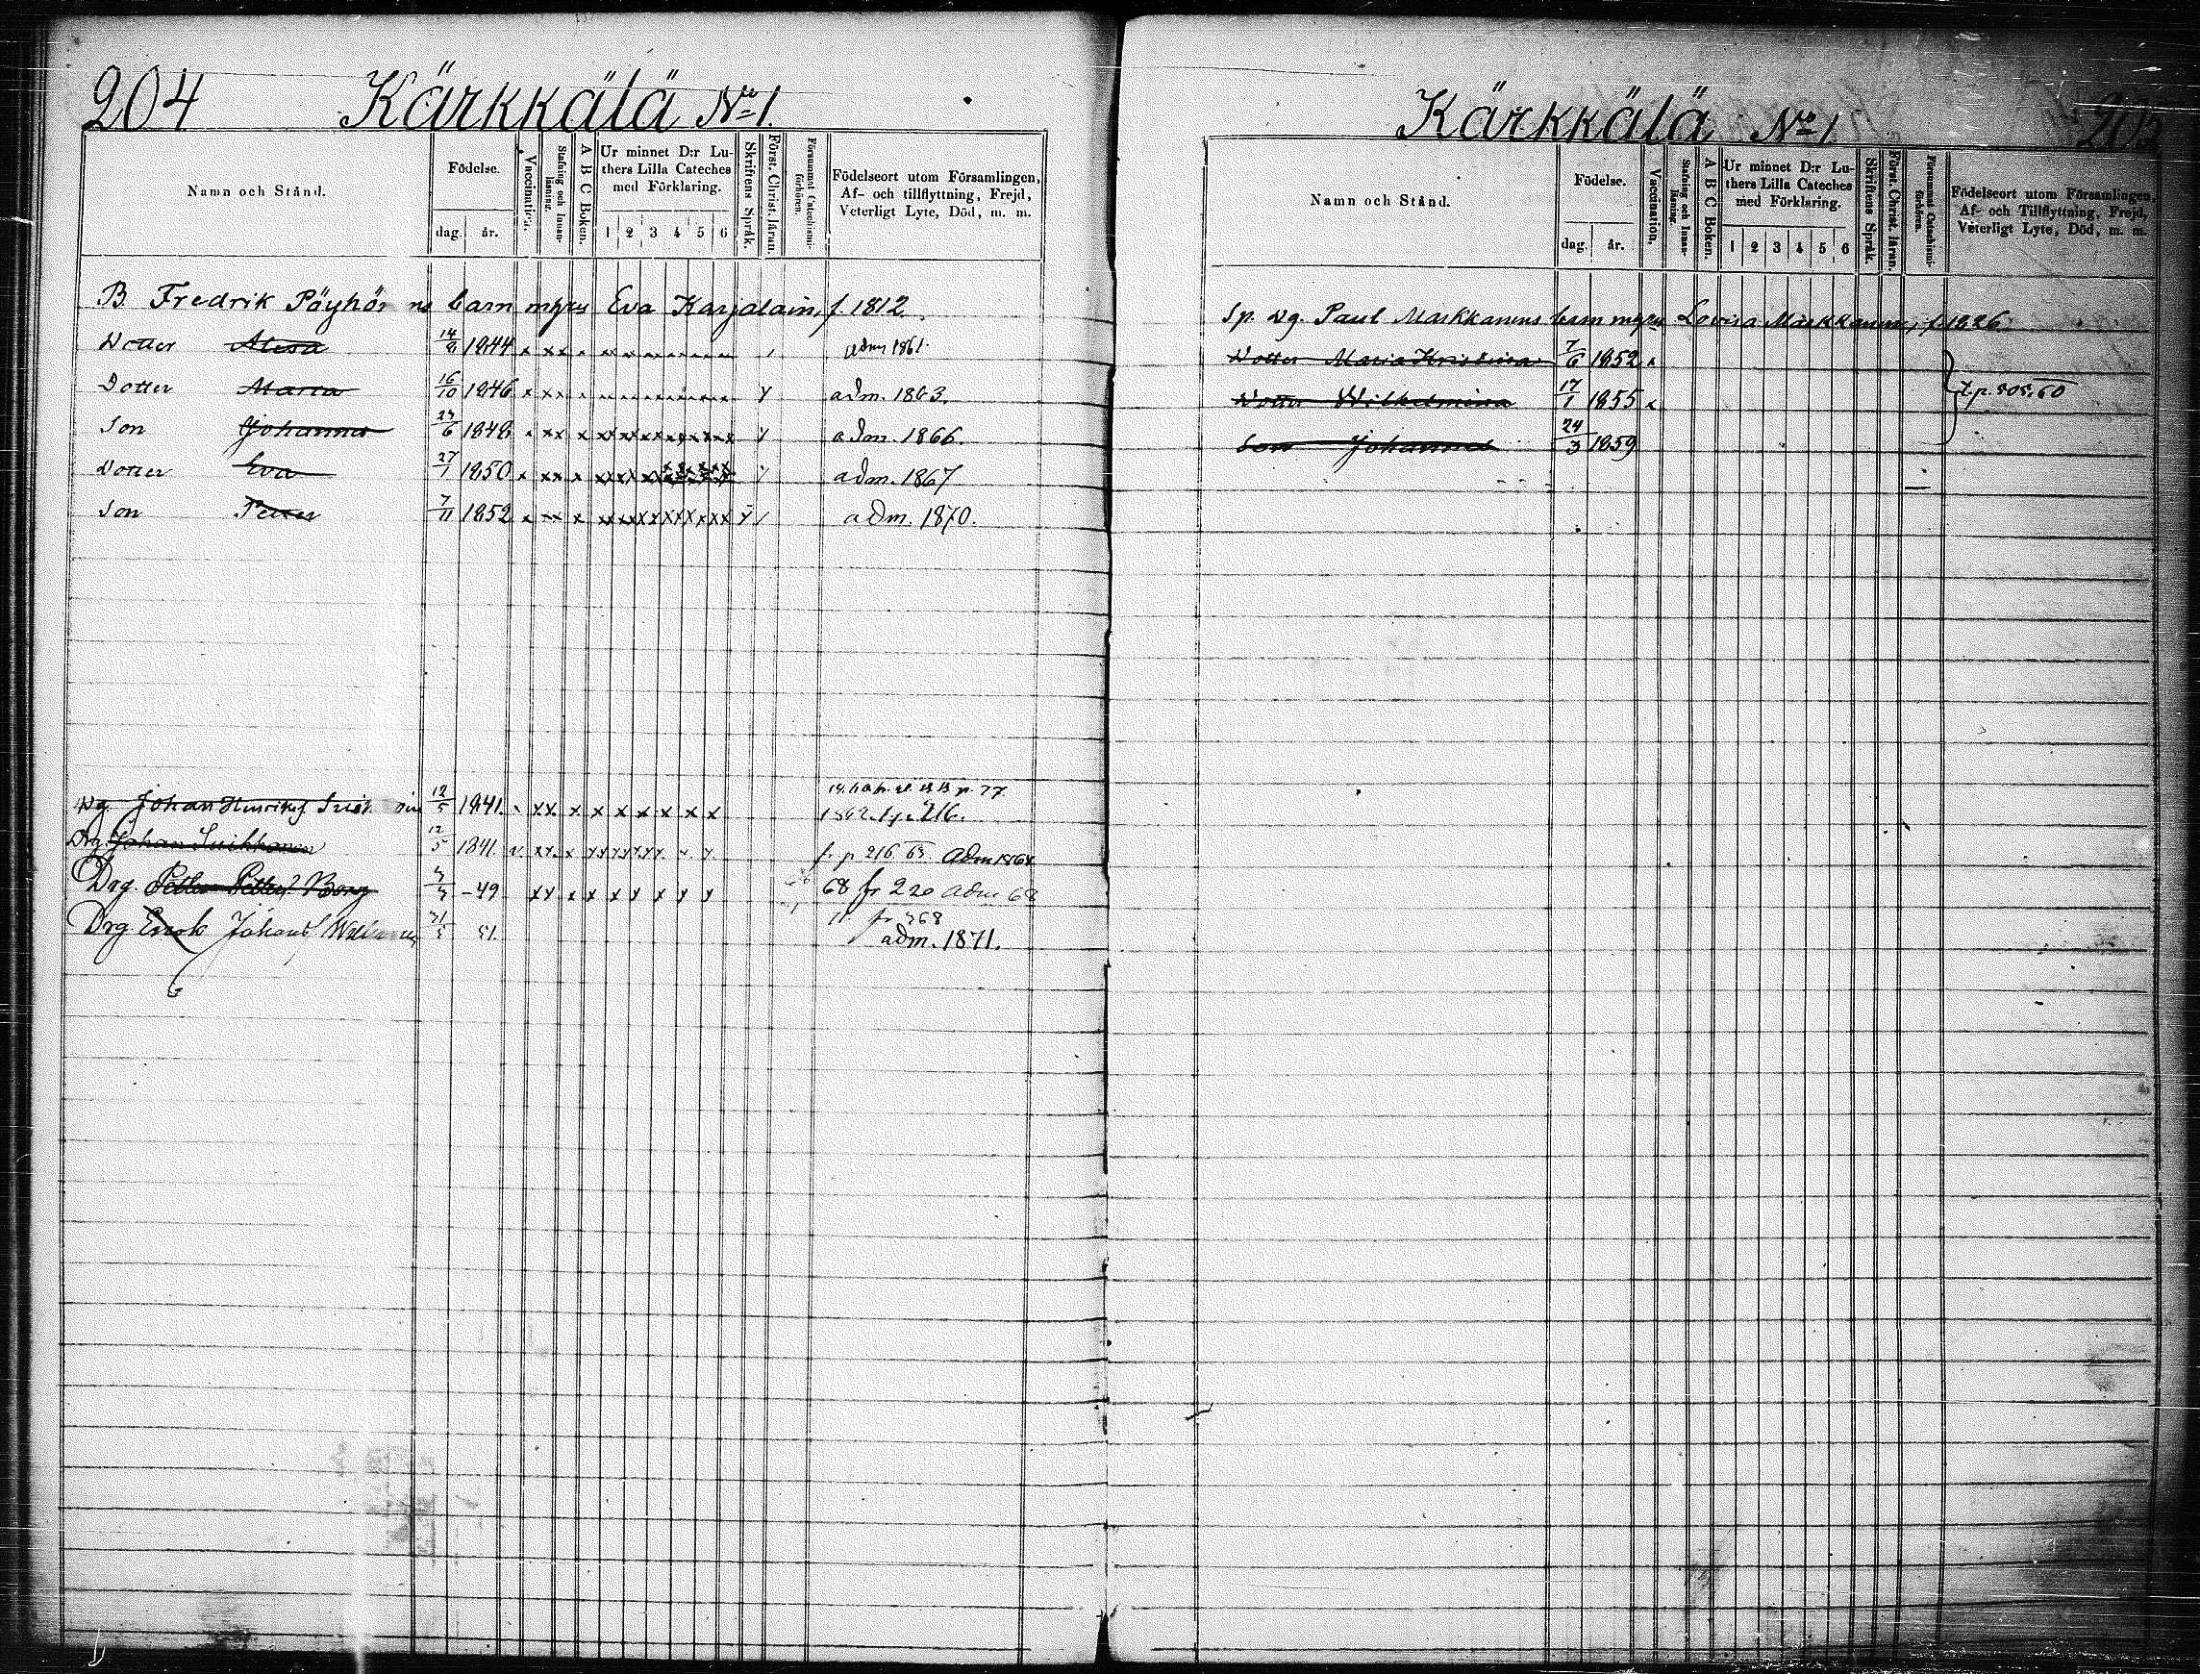 204 Kärkkälä No 1.
Namn och Stånd.
Födelse.
dag. år.
Vaccination.
Stafning och Innan-läsning.
A B C Boken.
Ur minnet D:r Lu-
thers Lilla Cateches
med Förklaring.
1 2 3 4 5 6
Skriftens Språk.
Först. Christ. läran.
Försummat Catechismi-förhören.
Födelseort utom Församlingen,
Af- och tillflyttning, Frejd,
Veterligt Lyte, Död, m. m.
B. Fredrik Pöyhö ns barn m Eva Karjalain, f. 1812.
Dotter 14/8 1844 adm 1861.
Dotter Maria 16/10 1846 adm. 1863.
Son Johannes 24/6 1848 adm. 1866.
Dotter Eva 27/1 1850 adm. 1867
Son Petter 7/11 1852 adm. 1870.
Dg. Johan Henriks. 12/5 1841. p. 77
1862. 216.
Drg. Johan Suikkanen 12/5 1841. f. p 216 63 adm 1864
Drg. Petter Petters. Berg -49 68 fr 220 adm 68
Drg. Enok Johans 31/5 51. fr 368
adm. 1871.
Kärkkälä No 1. 205
Namn och Stånd.
Födelse.
dag. år.
Vaccination,
Stafning och Innan-läsning.
A B C Boken.
Ur minnet D:r Lu-
thers Lilla Cateches
med Förklaring.
1 2 3 4 5 6
Skriftens Språk.
Först. Christ. läran.
Försummat Catechismi-förhören.
Födelseort utom Församlingen,
Af- och Tillflyttning, Frejd,
Veterligt Lyte, Död, m. m.
Sp. Dg. Paul Markkanens barn m Lovisa Markkanen, f 1826
Dotter Maria Kristina 7/6 1852
Dotter Wilhelmina 17/1 1855 t.p. 505. 60
Son Johannes 24/3 1859